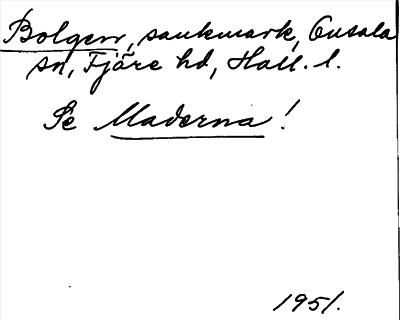 Bolgen, sankmark, Onsala
sn, Fjäre hd, Hall. l.
Se Maderna!
1951.